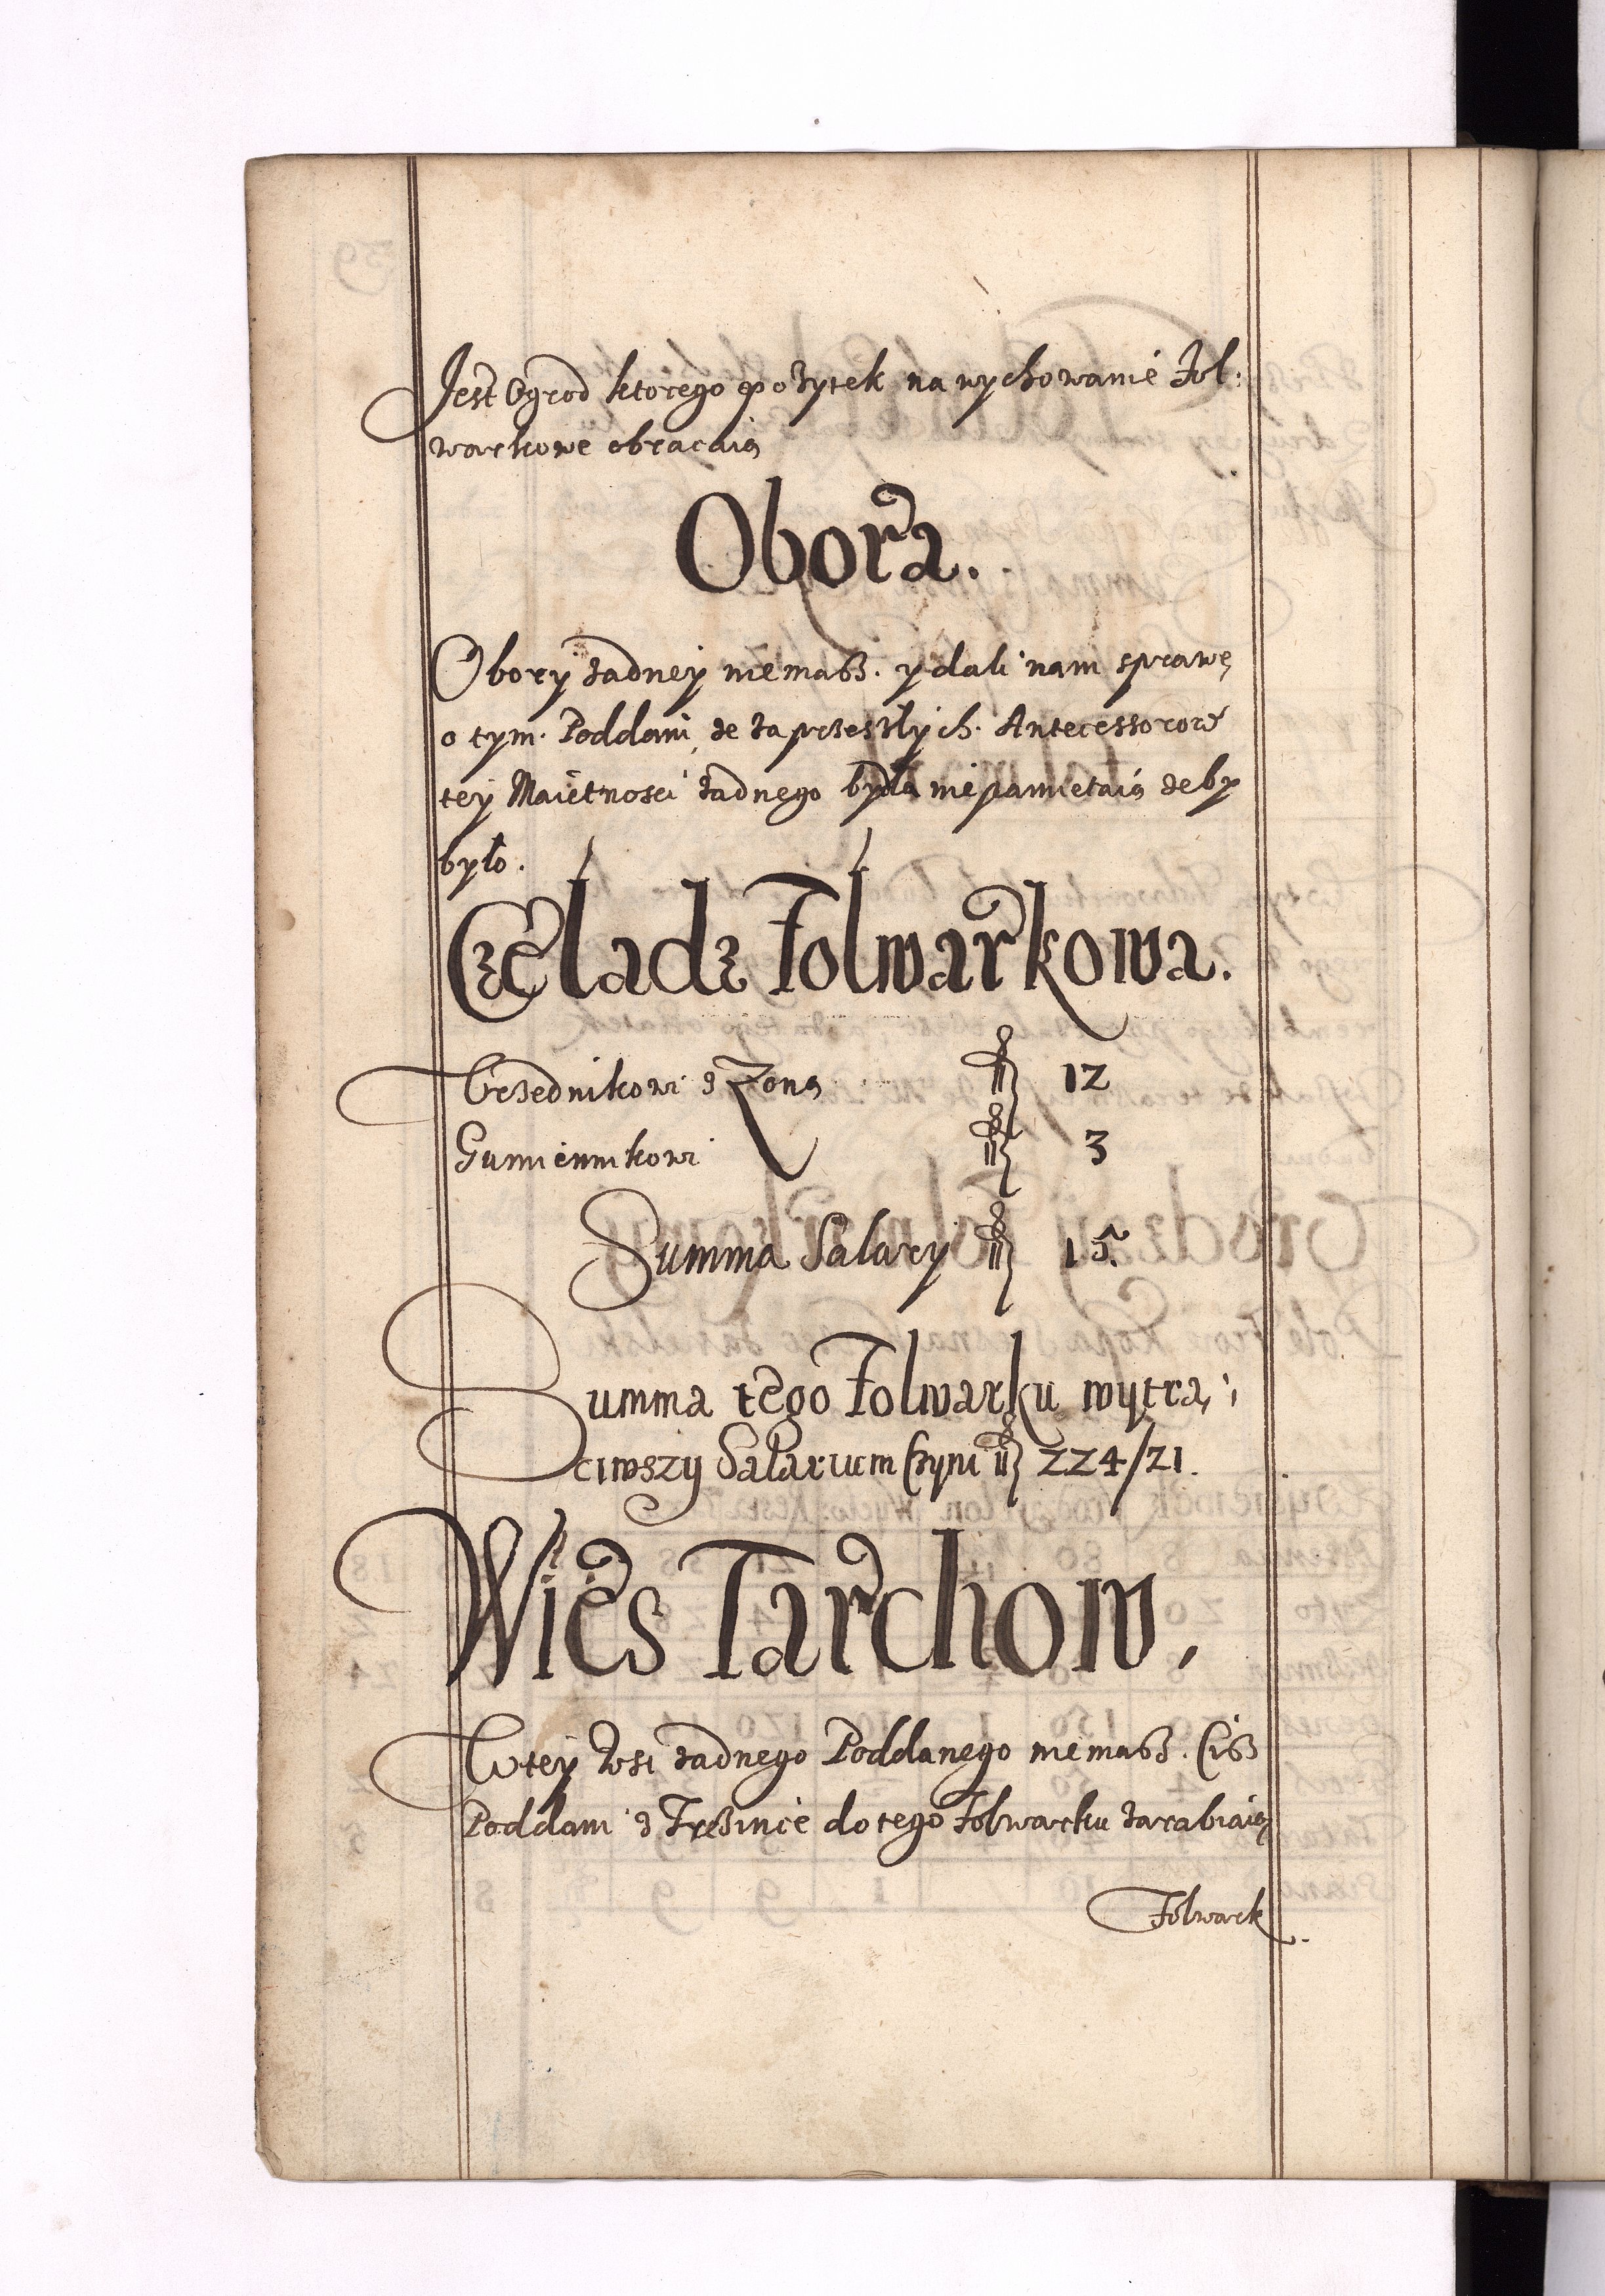 Jest Ogrod ktorego pożytek na wychowanie Fol:
warkowe obracaią
Obora.
Obory żadney niemasz. y dali nam sprawę
o tym. Poddani, że za przeszłych. Antecessorow
tey Maiętnosci żadnego bydła niepamietaią żeby
było.
Czeladz Folwarkowa.
Urzednikowi z Zoną fl 12
Gumiennikowi fl 3
Summa Salary fl 15.
Summa tego Folwarku wytrą:
ciwszy Salarium czyni fl 224/21.
Wies Tarchow,
W tey Wsi żadnego Poddanego niemasz. Cisz
Poddani z do tego Folwarku zarabiaią
Folwark